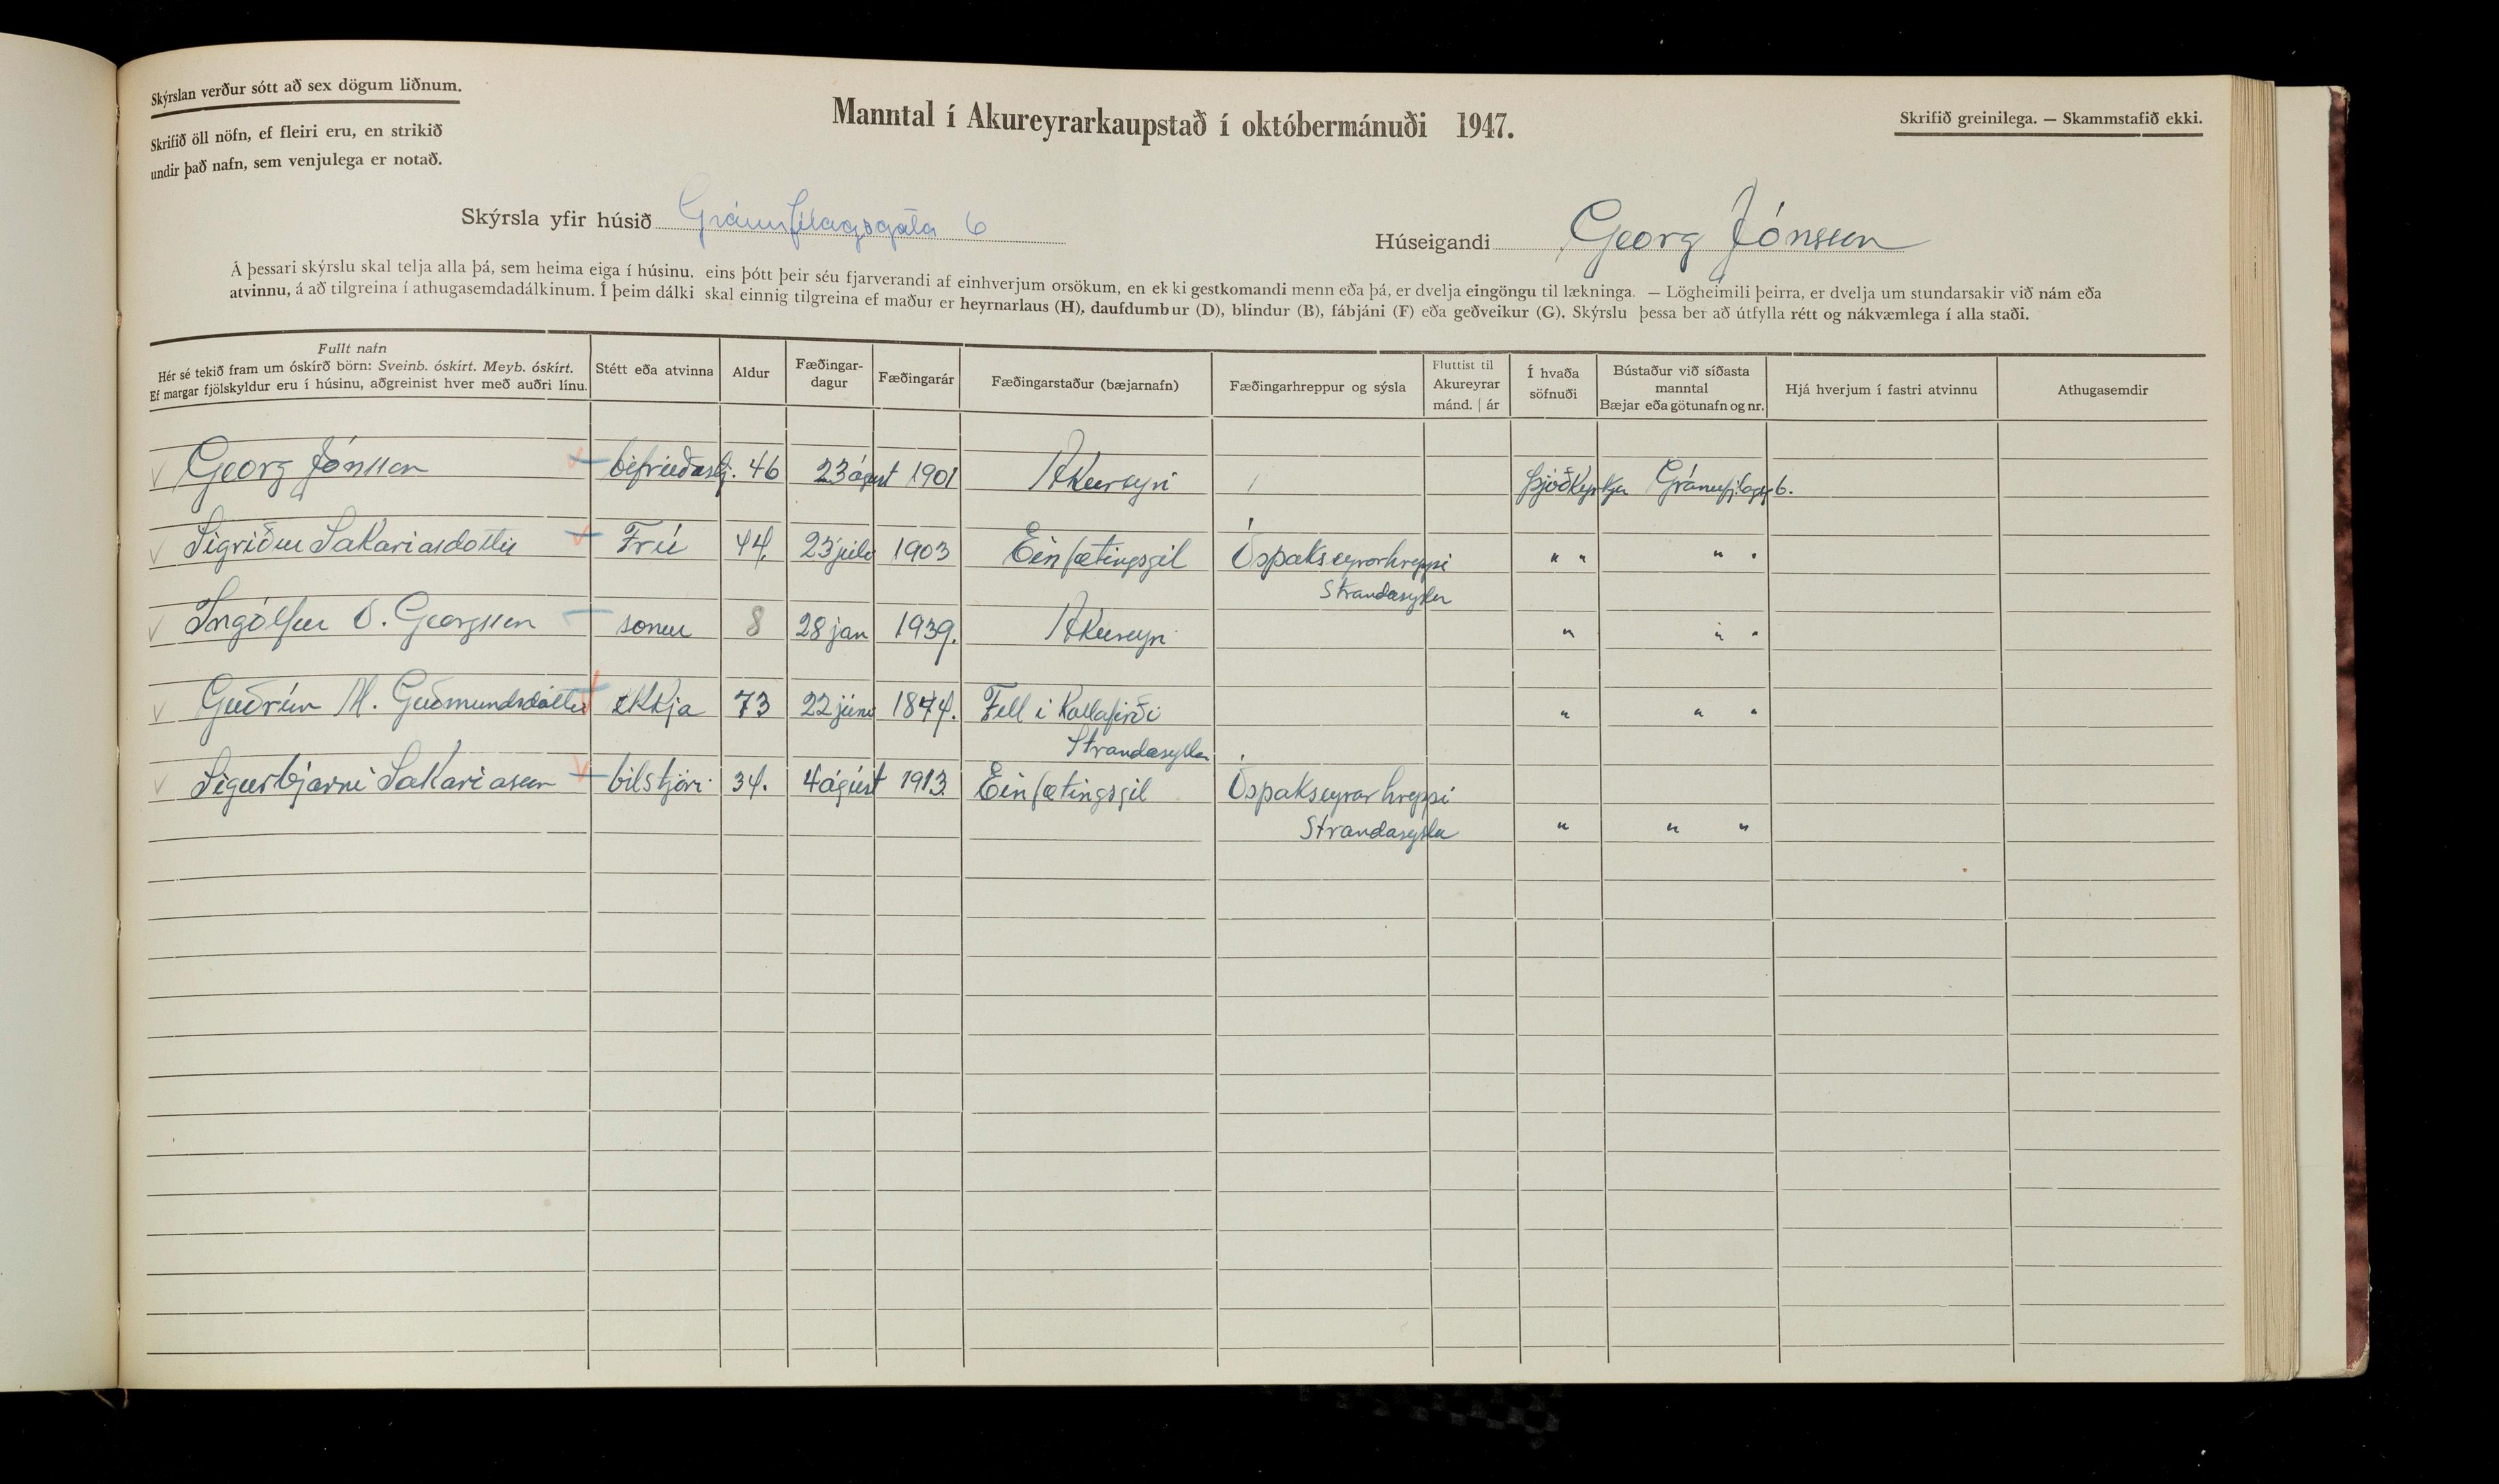 Skýrslan verður sótt að sex dögum liðnum.
Skrifið öll nöfn, ef fleiri eru, en strikið
undir það nafn, sem venjulega er notað.
Manntal í Akureyrarkaupstað í októbermánuði 1947.
Skrifið greinilega. — Skammstafið ekki.
Skýrsla yfir húsið Gránufélagsgata 6
Húseigandi Georg Jónsson
Á þessari skýrslu skal telja alla þá, sem heima eiga í húsinu, eins þótt þeir séu fjarverandi af einhverjum orsökum, en ekki gestkomandi menn eða þá, er dvelja eingöngu til lækninga. — Lögheimili þeirra, er dvelja um stundarsakir við nám eða
atvinnu, á að tilgreina í athugasemdadálkinum. Í þeim dálki skal einnig tilgreina ef maður er heyrnarlaus (H), daufdumbur (D), blindur (B), fábjáni (F) eða geðveikur (G). Skýrslu þessa ber að útfylla rétt og nákvæmlega í alla staði.
Fullt nafn
Hér sé tekið fram um óskírð börn: Sveinb. óskírt. Meyb. óskírt.
Ef margar fjölskyldur eru í húsinu, aðgreinist hver með auðri línu.
Stétt eða atvinna
Aldur
Fæðingar-
dagur
Fæðingarár
Fæðingarstaður (bæjarnafn)
Fæðingarhreppur og sýsla
Fluttist til
Akureyrar
mánd. | ár
Í hvaða
söfnuði
Bústaður við síðasta
manntal
Bæjar eða götunafn og nr.
Hjá hverjum í fastri atvinnu
Athugasemdir
Georg Jónsson bifreiðastj. 46 23 ágúst 1901 Akureyri Þjóðkirkja Gránufjelagsg 6.
Sigríður Sakariasdottir Frú 44. 23 júlí 1903 Einfætingsgil Óspakseyrarhreppi " " " "
Strandasýslu
Ingólfur O. Georgsson sonur 8 28 jan 1939. Akureyri " " "
Guðrún M. Guðmundsdóttir ekkja 73 22 júní 1874. Fell í Kollafirði " " "
Strandasýslu
Sigurbjarni Sakariasson bilstjóri 34. 4 ágúst 1913. Einfætingsgil Óspakseyrarhreppi
Strandasýslu " " "